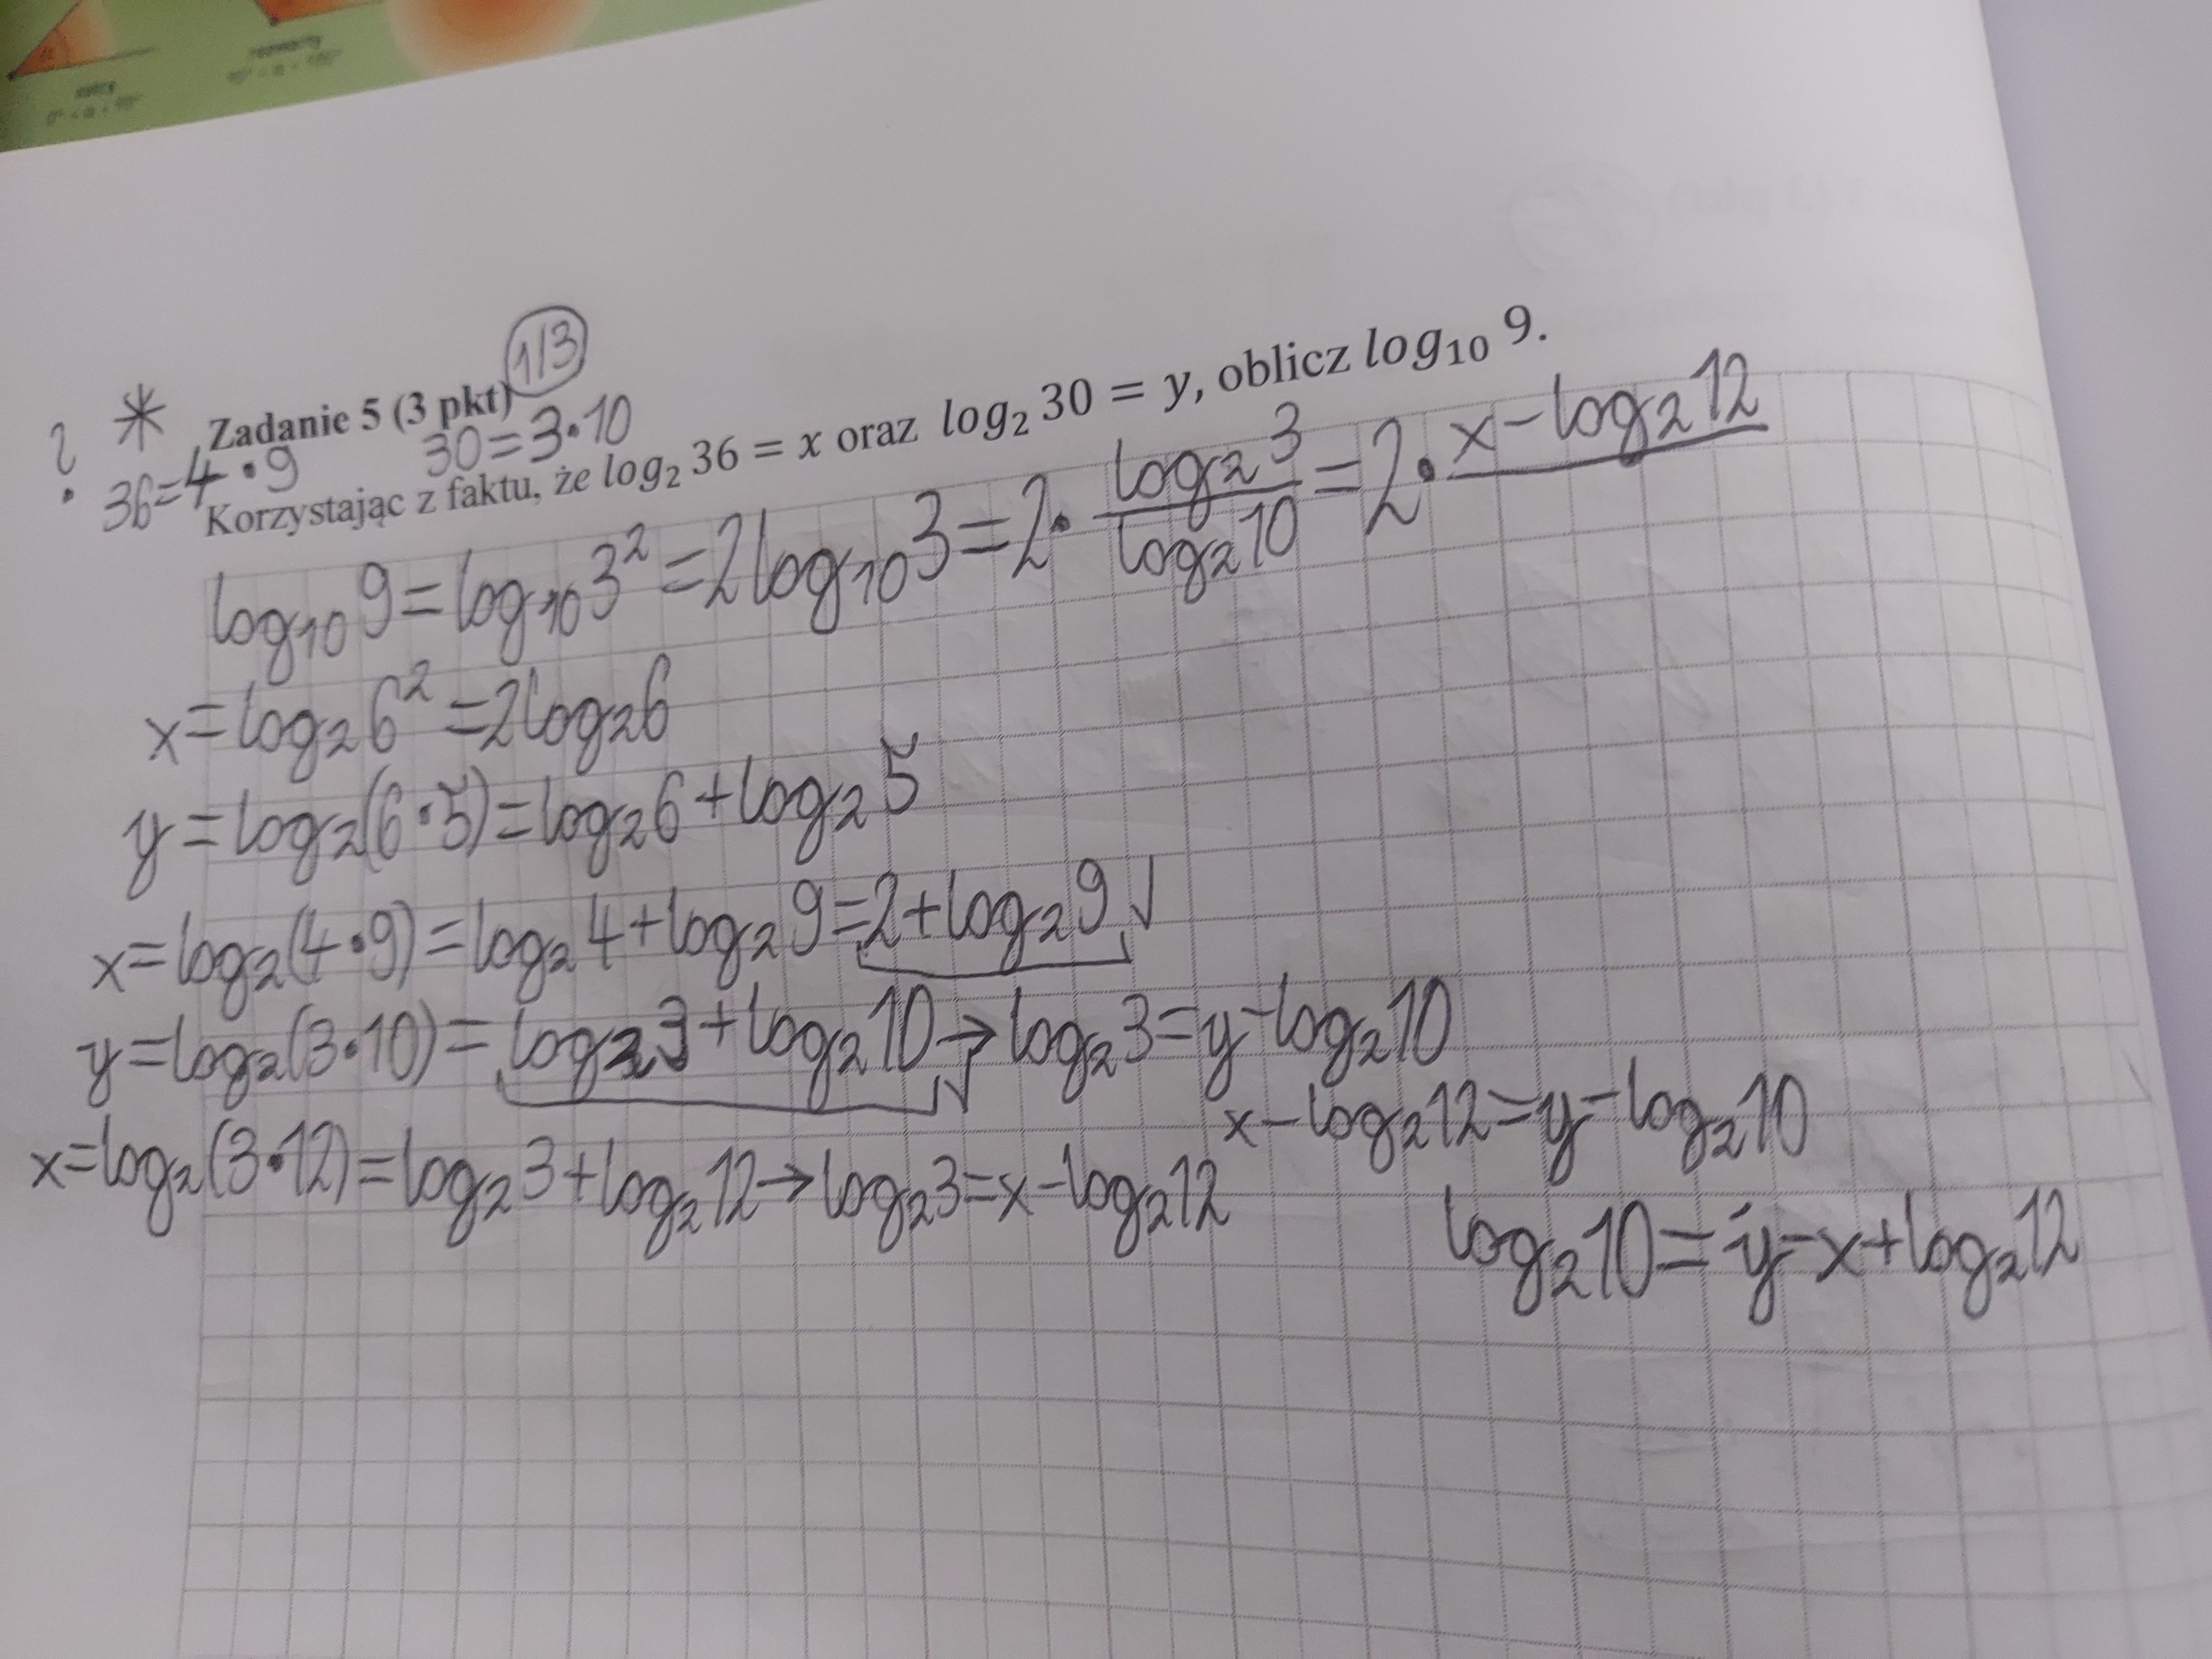 1/3
? * Zadanie 5 (3 pkt)
36=4•9 30=3•10
Korzystając z faktu, że log₂ 36 = x oraz log₂ 30 = y, oblicz log₁₀ 9.
log₁₀9=log₁₀3²=2log₁₀3=2•(log₂3/log₂10)=2•x-log₂12
x=log₂6²=2log₂6
y=log₂(6•5)=log₂6+log₂5
x=log₂(4•9)=log₂4+log₂9=2+log₂9 √
y=log₂(3•10)=log₂3+log₂10→log₂3=y-log₂10
x-log₂12=y-log₂10
x=log₂(3•12)=log₂3+log₂12→log₂3=x-log₂12
log₂10=y-x+log₂12